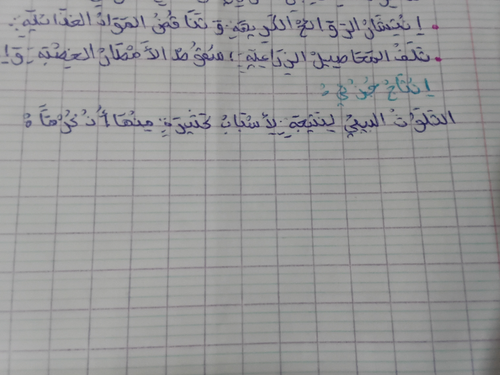 • اِنْتِشَارُ الرَّوَائِحِ الكَرِيهَةِ وَ تَنَاقُصُ المَوَادِّ الغِذَائِيَّةِ.
• تَلَفُ المَحَاصِيلِ الزِّرَاعِيَّةِ، سُقُوطُ الأَمْطَارِ الحِمْضِيَّةِ، وَ
إِنْتَاجٌ جُزْئِيٌّ:
التَّلَوُّثُ البِيئِيُّ نَتِيجَةٌ لِأَسْبَابٍ كَثِيرَةٍ مِنْهَا أَذْكُرُ مَا: